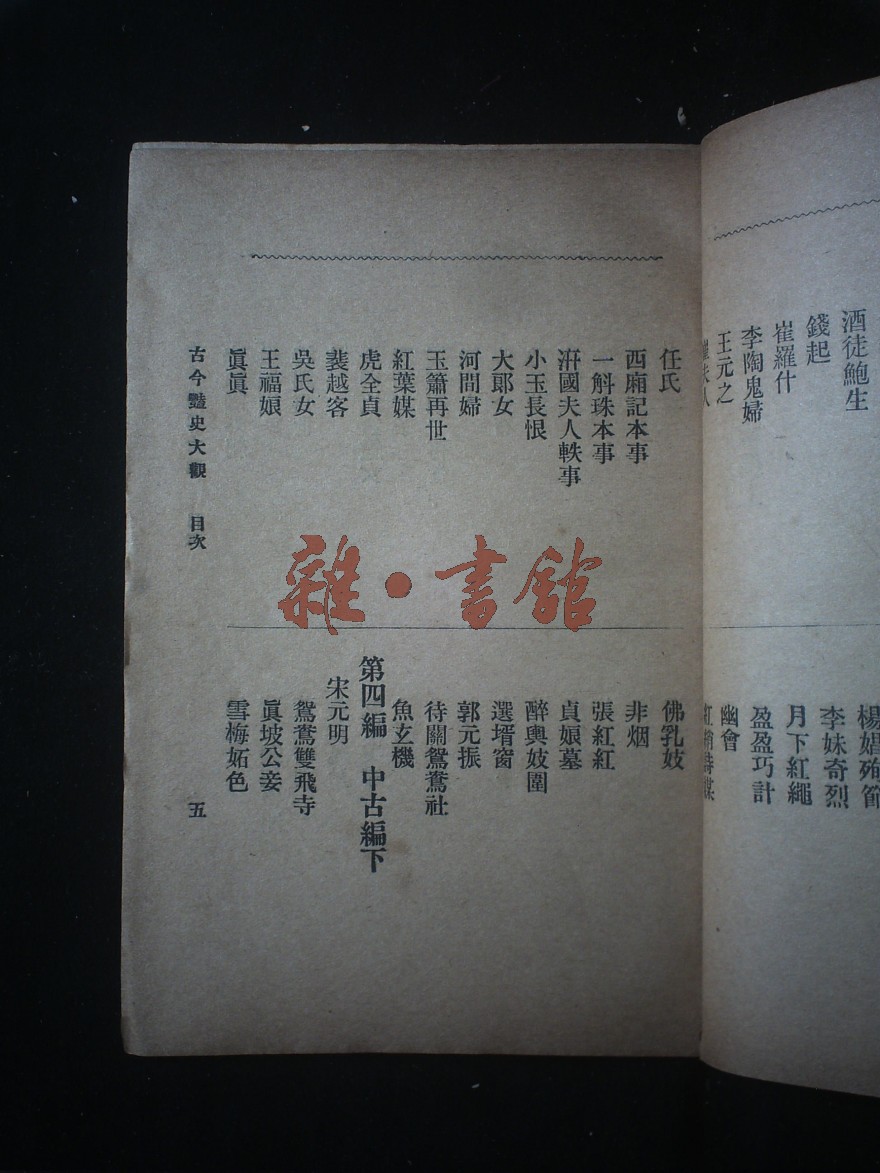 酒徒鮑生
錢起
崔羅什
李陶鬼婦
王元之
夫人
楊娼殉節
李妹奇烈
月下紅繩
盈盈巧計
幽會
任氏
西廂記本事
一斛珠本事
汧國夫人軼事
小玉長恨
大郞女
河間婦
玉簫再世
紅葉媒
虎全貞
裴越客
吳氏女
王福娘
眞眞
佛乳妓
非烟
張紅紅
貞娘墓
醉輿妓圍
選壻窗
郭元振
待闕鴛鴦社
魚玄機
第四編 中古編下
宋元明
鴛鴦雙飛寺
眞坡公妾
雪梅妬色
古今豔史大觀 目次
五
雜·書館